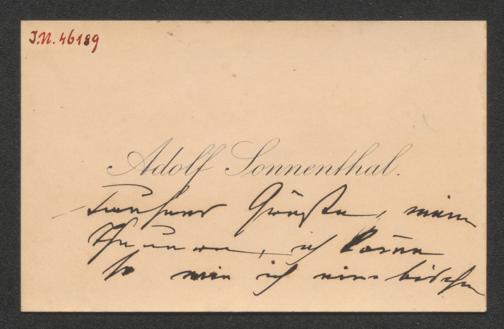 I.N. 46189
Adolf Sonnenthal.
Tausend Grüße, mein
ich komme
so wie ich ein bischen